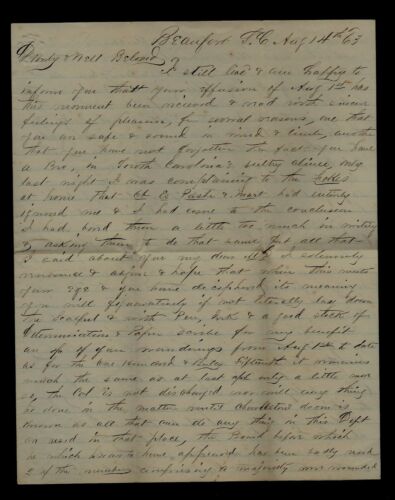 Beaufort S. C Aug 14th 63
I still live & am happy to
inform you that your effusion of Aug 1st has
this moment been received & read with sincere
feelings of pleasure, for several reasons, one that
you are safe & sound in mind & limb, another
that you have not forgotten the fact you have
a Bro, in South Carolina's sultry clime, only
last night I was complaining to the
at home that had entirely
ignored me & I had come to the conclusion
I had bored them a little too much in writing
& asking them to do that same, but all that
I said about you my dear I solemnly
renounce & & hope that when this meets
your Eye & you have deciphered its meaning
you will figuratively if not literally lay down
the & with Pen, Ink & a good stock of
& Paper scribe for my benefit
an of your wanderings from Aug 1st to date
as for the One Hundred & Fifteenth it remains
much the same as at last only a little more
so, the Col is not discharged nor will any thing
be done in the matter until Charleston's doom is
known as all that can do any thing in this Dept
are used in that place, the Board before which
he which was to have appeared has been badly
2 of the members comprising a majority are wounded